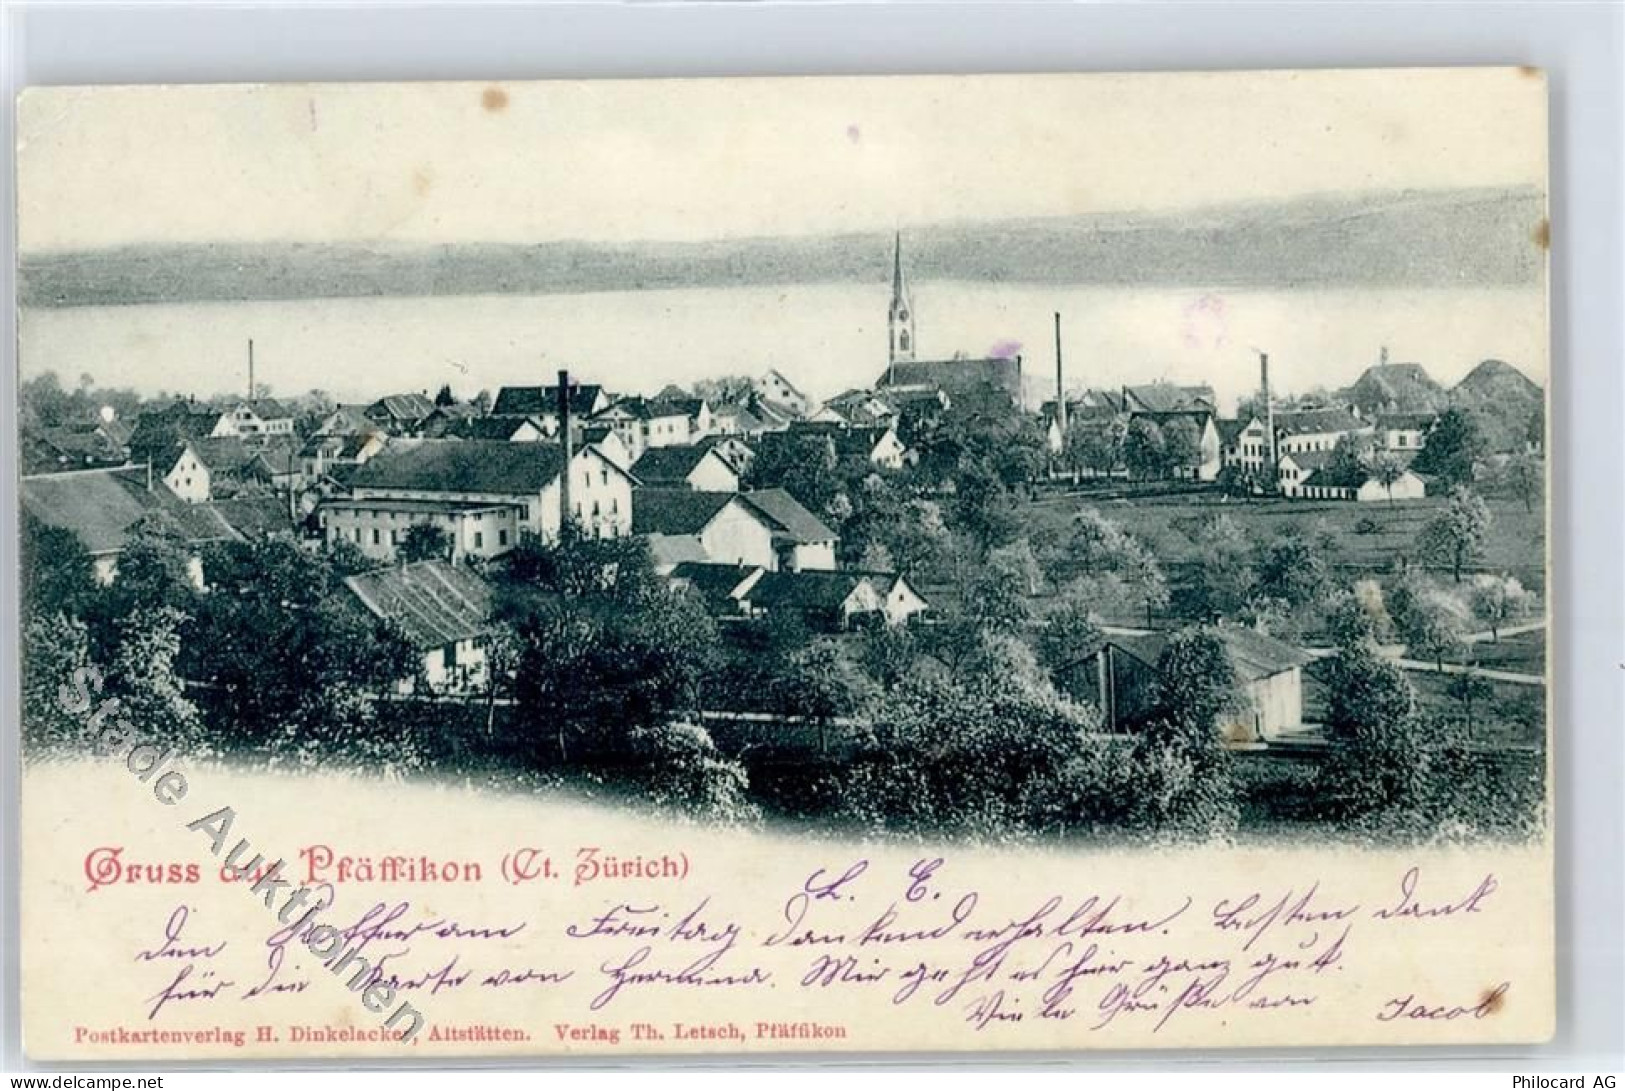 Gruss aus Pfäffikon (Ct. Zürich)
L. E.
den Koffer am Freitag dankend erhalten. Besten Dank
für die Karte von Hermina. Mir geht es hier ganz gut.
Viele Grüße von Jacob
Postkartenverlag H. Dinkelacker, Altstätten. Verlag Th. Letsch, Pfäffikon
Stade Auktionen
Philocard AG
www.delcampe.net